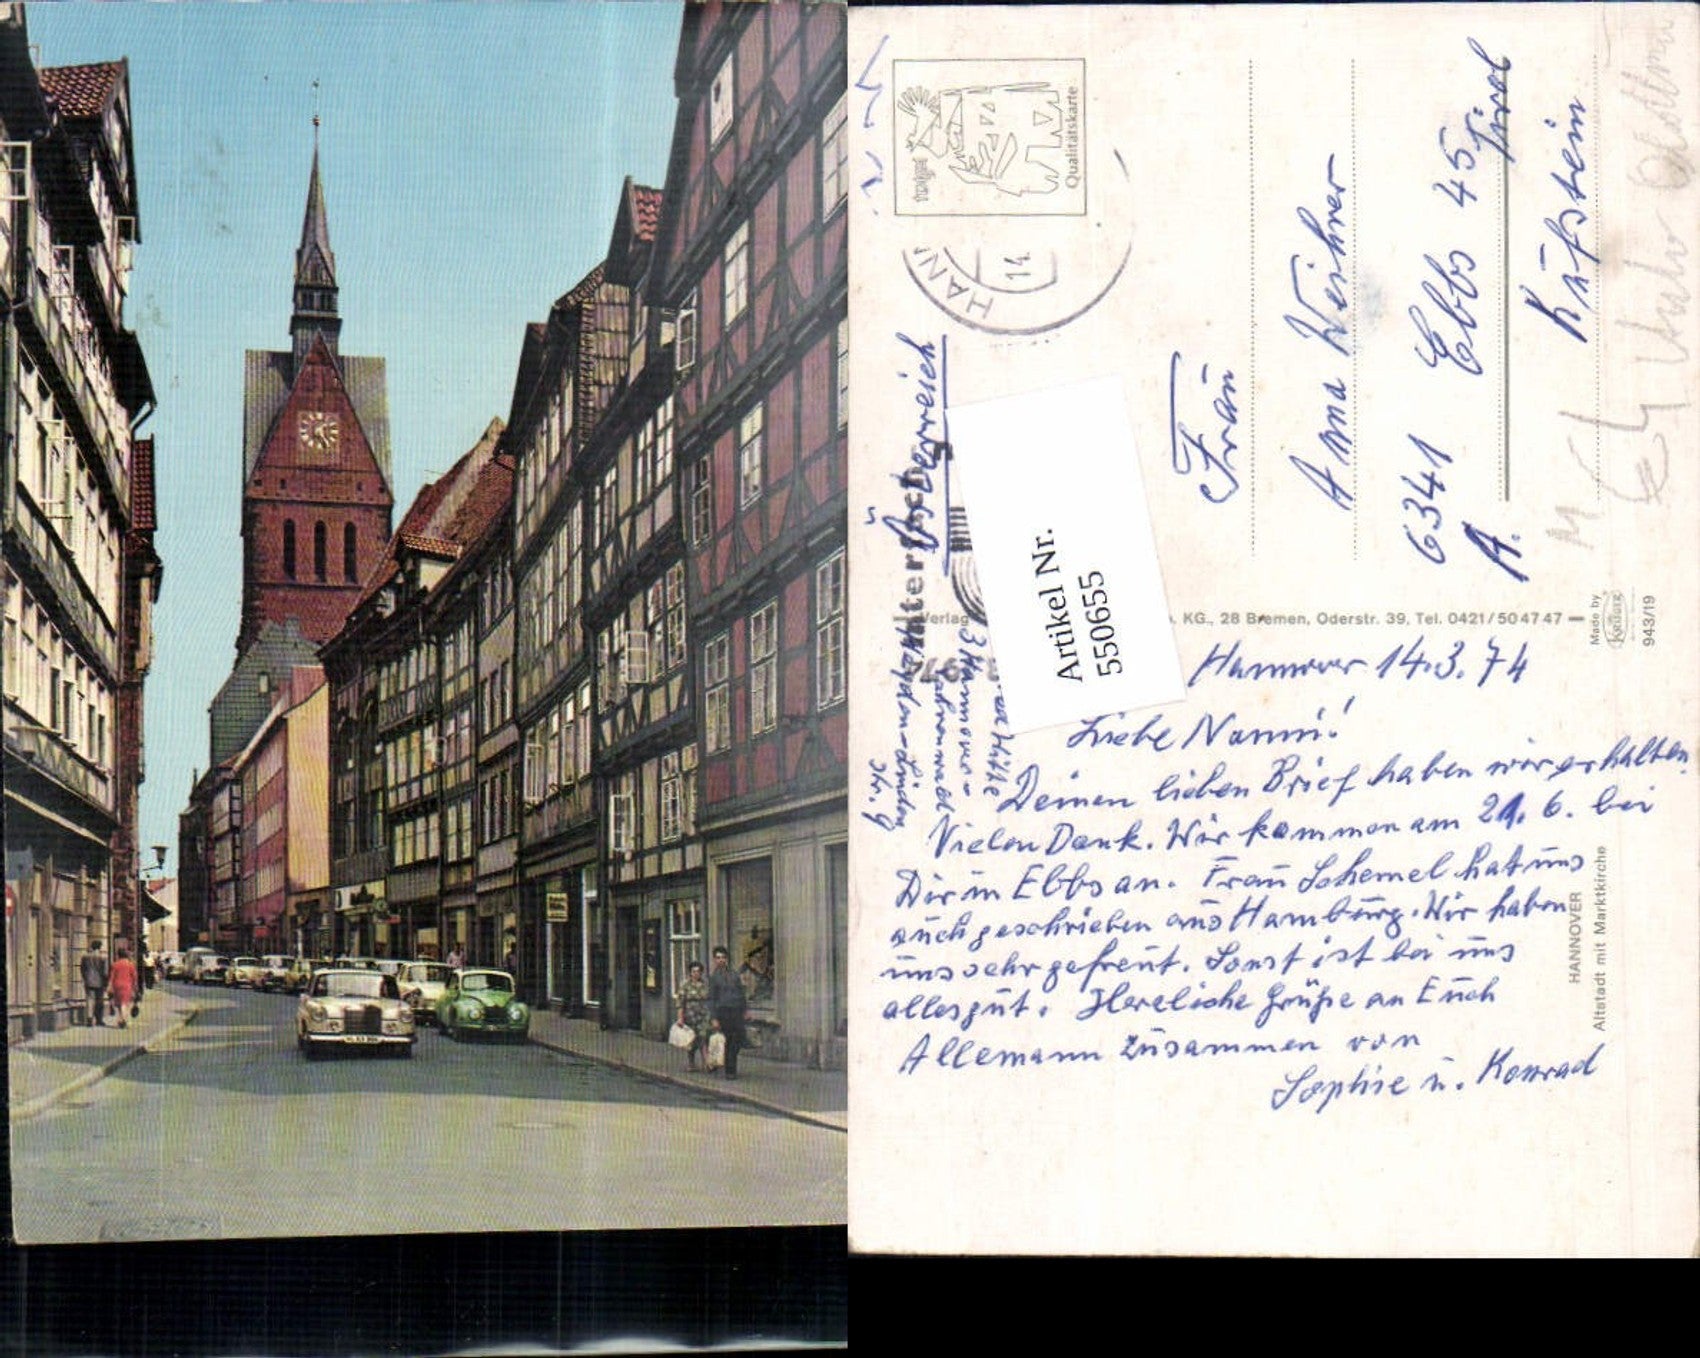 Hannover 14.3.74
Liebe Nanni!
Deinen lieben Brief haben wir erhalten.
Vielen Dank. Wir kommen am 21. 6. bei
Dir in Ebbs an. Frau Schemel hat uns
auch geschrieben aus Hamburg. Wir haben
uns sehr gefreut. Sonst ist bei uns
alles gut. Herzliche Grüße an Euch
Allemann zusammen von
Sophie u. Konrad
Frau
Anna Weihrer
6341 Ebbs 45
A. Tirol
Kufstein
Österreich
3 Hannover-
Str. 9
Artikel Nr.
550655
HANN
14
Qualitätskarte
Verlag
KG., 28 Bremen, Oderstr. 39, Tel. 0421/504747
Made by
Krüger
943/19
HANNOVER
Altstadt mit Marktkirche